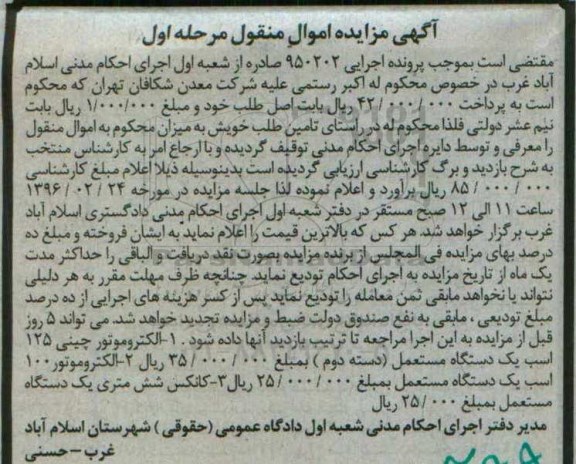 آگهی مزایده اموال منقول مرحله اول
مقتضی است بموجب پرونده اجرایی ۹۵۰۲۰۲ صادره از شعبه اول اجرای احکام مدنی اسلام
آباد غرب در خصوص محکوم له اکبر رستمی علیه شرکت معدن شکافان تهران که محکوم
است به پرداخت ۴۲/۰۰۰/۰۰۰ ریال بابت اصل طلب خود و مبلغ ۱/۰۰۰/۰۰۰ ریال بابت
نیم عشر دولتی فلذا محکوم له در راستای تامین طلب خویش به میزان محکوم به اموال منقول
را معرفی و توسط دایره اجرای احکام مدنی توقیف گردیده و با ارجاع امر به کارشناس منتخب
به شرح بازدید و برگ کارشناسی ارزیابی گردیده است بدینوسیله ذیلا اعلام مبلغ کارشناسی
۸۵/۰۰۰/۰۰۰ ریال برآورد و اعلام نموده لذا جلسه مزایده در مورخه ۲۴ / ۰۲ / ۱۳۹۶
ساعت ۱۱ الی ۱۲ صبح مستقر در دفتر شعبه اول اجرای احکام مدنی دادگستری اسلام آباد
غرب برگزار خواهد شد. هر کس که بالاترین قیمت را اعلام نماید به ایشان فروخته و مبلغ ده
درصد بهای مزایده فی المجلس از برنده مزایده بصورت نقد دریافت و الباقی را حداکثر مدت
یک ماه از تاریخ مزایده به اجرای احکام تودیع نماید. چنانچه ظرف مهلت مقرر به هر دلیلی
نتواند یا نخواهد مابقی ثمن معامله را تودیع نماید پس از کسر هزینه های اجرایی از ده درصد
مبلغ تودیعی ، مابقی به نفع صندوق دولت ضبط و مزایده تجدید خواهد شد. می تواند ۵ روز
قبل از مزایده به این اجرا مراجعه تا ترتیب بازدید آنها داده شود . ۱-الکتروموتور چینی ۱۲۵
اسب یک دستگاه مستعمل (دسته دوم ) بمبلغ ۳۵/۰۰۰/۰۰۰ ریال ۲-الکتروموتور ۱۰۰
اسب یک دستگاه مستعمل بمبلغ ۲۵/۰۰۰/۰۰۰ ریال۳-کانکس شش متری یک دستگاه
مستعمل بمبلغ ۲۵/۰۰۰ ریال
مدیر دفتر اجرای احکام مدنی شعبه اول دادگاه عمومی (حقوقی ) شهرستان اسلام آباد
غرب – حسنی